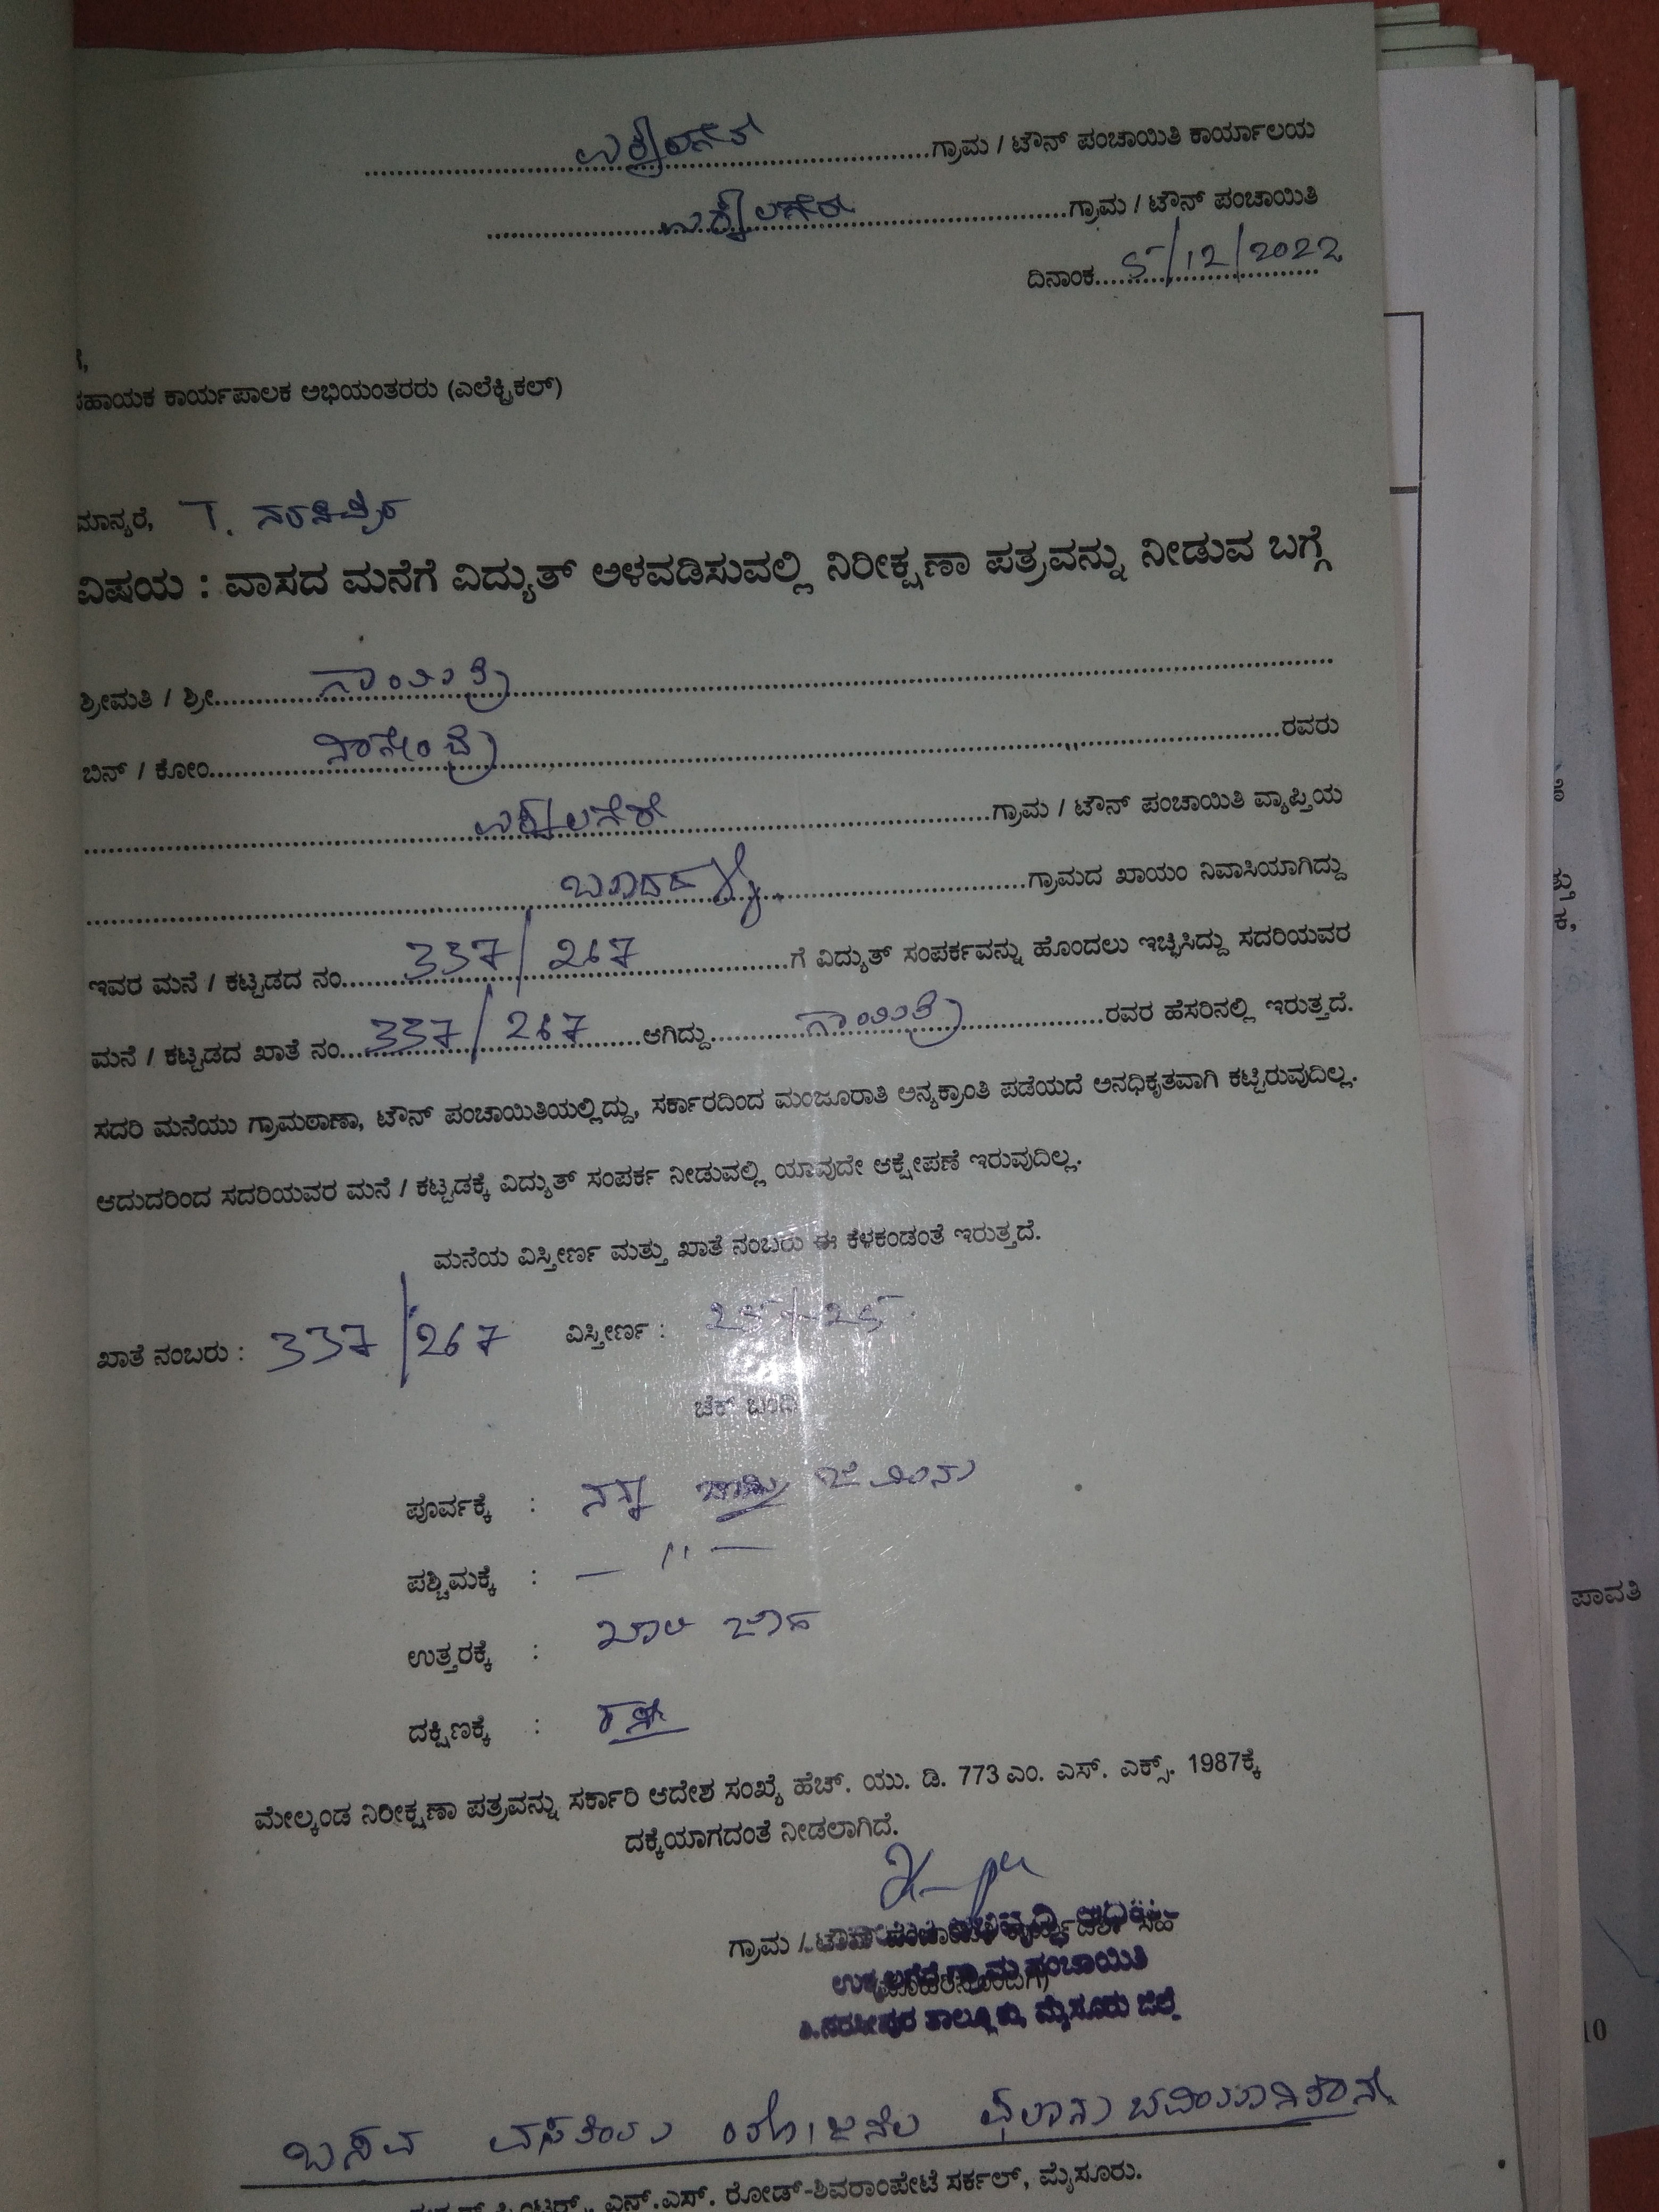 ಉಕ್ಕಲಗೆರೆ ಗ್ರಾಮ / ಟೌನ್ ಪಂಚಾಯಿತಿ ಕಾರ್ಯಾಲಯ
ಉಕ್ಕಲಗೆರೆ ಗ್ರಾಮ / ಟೌನ್ ಪಂಚಾಯಿತಿ
ದಿನಾಂಕ 5/12/2022
ಸಹಾಯಕ ಕಾರ್ಯಪಾಲಕ ಅಭಿಯಂತರರು (ಎಲೆಕ್ಟ್ರಿಕಲ್)
ಮಾನ್ಯರೆ, T. ನರಸೀಪುರ
ವಿಷಯ : ವಾಸದ ಮನೆಗೆ ವಿದ್ಯುತ್ ಅಳವಡಿಸುವಲ್ಲಿ ನಿರೀಕ್ಷಣಾ ಪತ್ರವನ್ನು ನೀಡುವ ಬಗ್ಗೆ
ಶ್ರೀಮತಿ / ಶ್ರೀ ಗಾಯಿತ್ರಿ
ಬಿನ್ / ಕೋಂ ರವರು
ಉಕ್ಕಲಗೆರೆ ಗ್ರಾಮ / ಟೌನ್ ಪಂಚಾಯಿತಿ ವ್ಯಾಪ್ತಿಯ
ಗ್ರಾಮದ ಖಾಯಂ ನಿವಾಸಿಯಾಗಿದ್ದು
ಇವರ ಮನೆ / ಕಟ್ಟಡದ ನಂ 337/267 ಗೆ ವಿದ್ಯುತ್ ಸಂಪರ್ಕವನ್ನು ಹೊಂದಲು ಇಚ್ಛಿಸಿದ್ದು ಸದರಿಯವರ
ಮನೆ / ಕಟ್ಟಡದ ಖಾತೆ ನಂ 337/267 ಆಗಿದ್ದು ಗಾಯಿತ್ರಿ ರವರ ಹೆಸರಿನಲ್ಲಿ ಇರುತ್ತದೆ.
ಸದರಿ ಮನೆಯು ಗ್ರಾಮಠಾಣಾ, ಟೌನ್ ಪಂಚಾಯಿತಿಯಲ್ಲಿದ್ದು, ಸರ್ಕಾರದಿಂದ ಮಂಜೂರಾತಿ ಅನ್ಯಕ್ರಾಂತಿ ಪಡೆಯದೆ ಅನಧಿಕೃತವಾಗಿ ಕಟ್ಟಿರುವುದಿಲ್ಲ.
ಆದುದರಿಂದ ಸದರಿಯವರ ಮನೆ / ಕಟ್ಟಡಕ್ಕೆ ವಿದ್ಯುತ್ ಸಂಪರ್ಕ ನೀಡುವಲ್ಲಿ ಯಾವುದೇ ಆಕ್ಷೇಪಣೆ ಇರುವುದಿಲ್ಲ.
ಮನೆಯ ವಿಸ್ತೀರ್ಣ ಮತ್ತು ಖಾತೆ ನಂಬರು ಈ ಕೆಳಕಂಡಂತೆ ಇರುತ್ತದೆ.
ಖಾತೆ ನಂಬರು : 337/267 ವಿಸ್ತೀರ್ಣ : 25+25
ಚೆಕ್ ಬಂದಿ
ಪೂರ್ವಕ್ಕೆ :
ಪಶ್ಚಿಮಕ್ಕೆ : — " —
ಉತ್ತರಕ್ಕೆ : ಖಾಲಿ ಜಾಗ
ದಕ್ಷಿಣಕ್ಕೆ : ರಸ್ತೆ
ಮೇಲ್ಕಂಡ ನಿರೀಕ್ಷಣಾ ಪತ್ರವನ್ನು ಸರ್ಕಾರಿ ಆದೇಶ ಸಂಖ್ಯೆ ಹೆಚ್. ಯು. ಡಿ. 773 ಎಂ. ಎಸ್. ಎಕ್ಸ್. 1987ಕ್ಕೆ
ದಕ್ಕೆಯಾಗದಂತೆ ನೀಡಲಾಗಿದೆ.
ಗ್ರಾಮ / ಟೌನ್
ಉಕ್ಕಲಗೆರೆ ಗ್ರಾಮ ಪಂಚಾಯಿತಿ
ತಿ.ನರಸೀಪುರ ತಾಲ್ಲೂಕು, ಮೈಸೂರು ಜಿಲ್ಲೆ
ಬಸವ ವಸತಿಯ
ಎನ್.ಎಸ್. ರೋಡ್-ಶಿವರಾಂಪೇಟೆ ಸರ್ಕಲ್, ಮೈಸೂರು.
ಪಾವತಿ
10